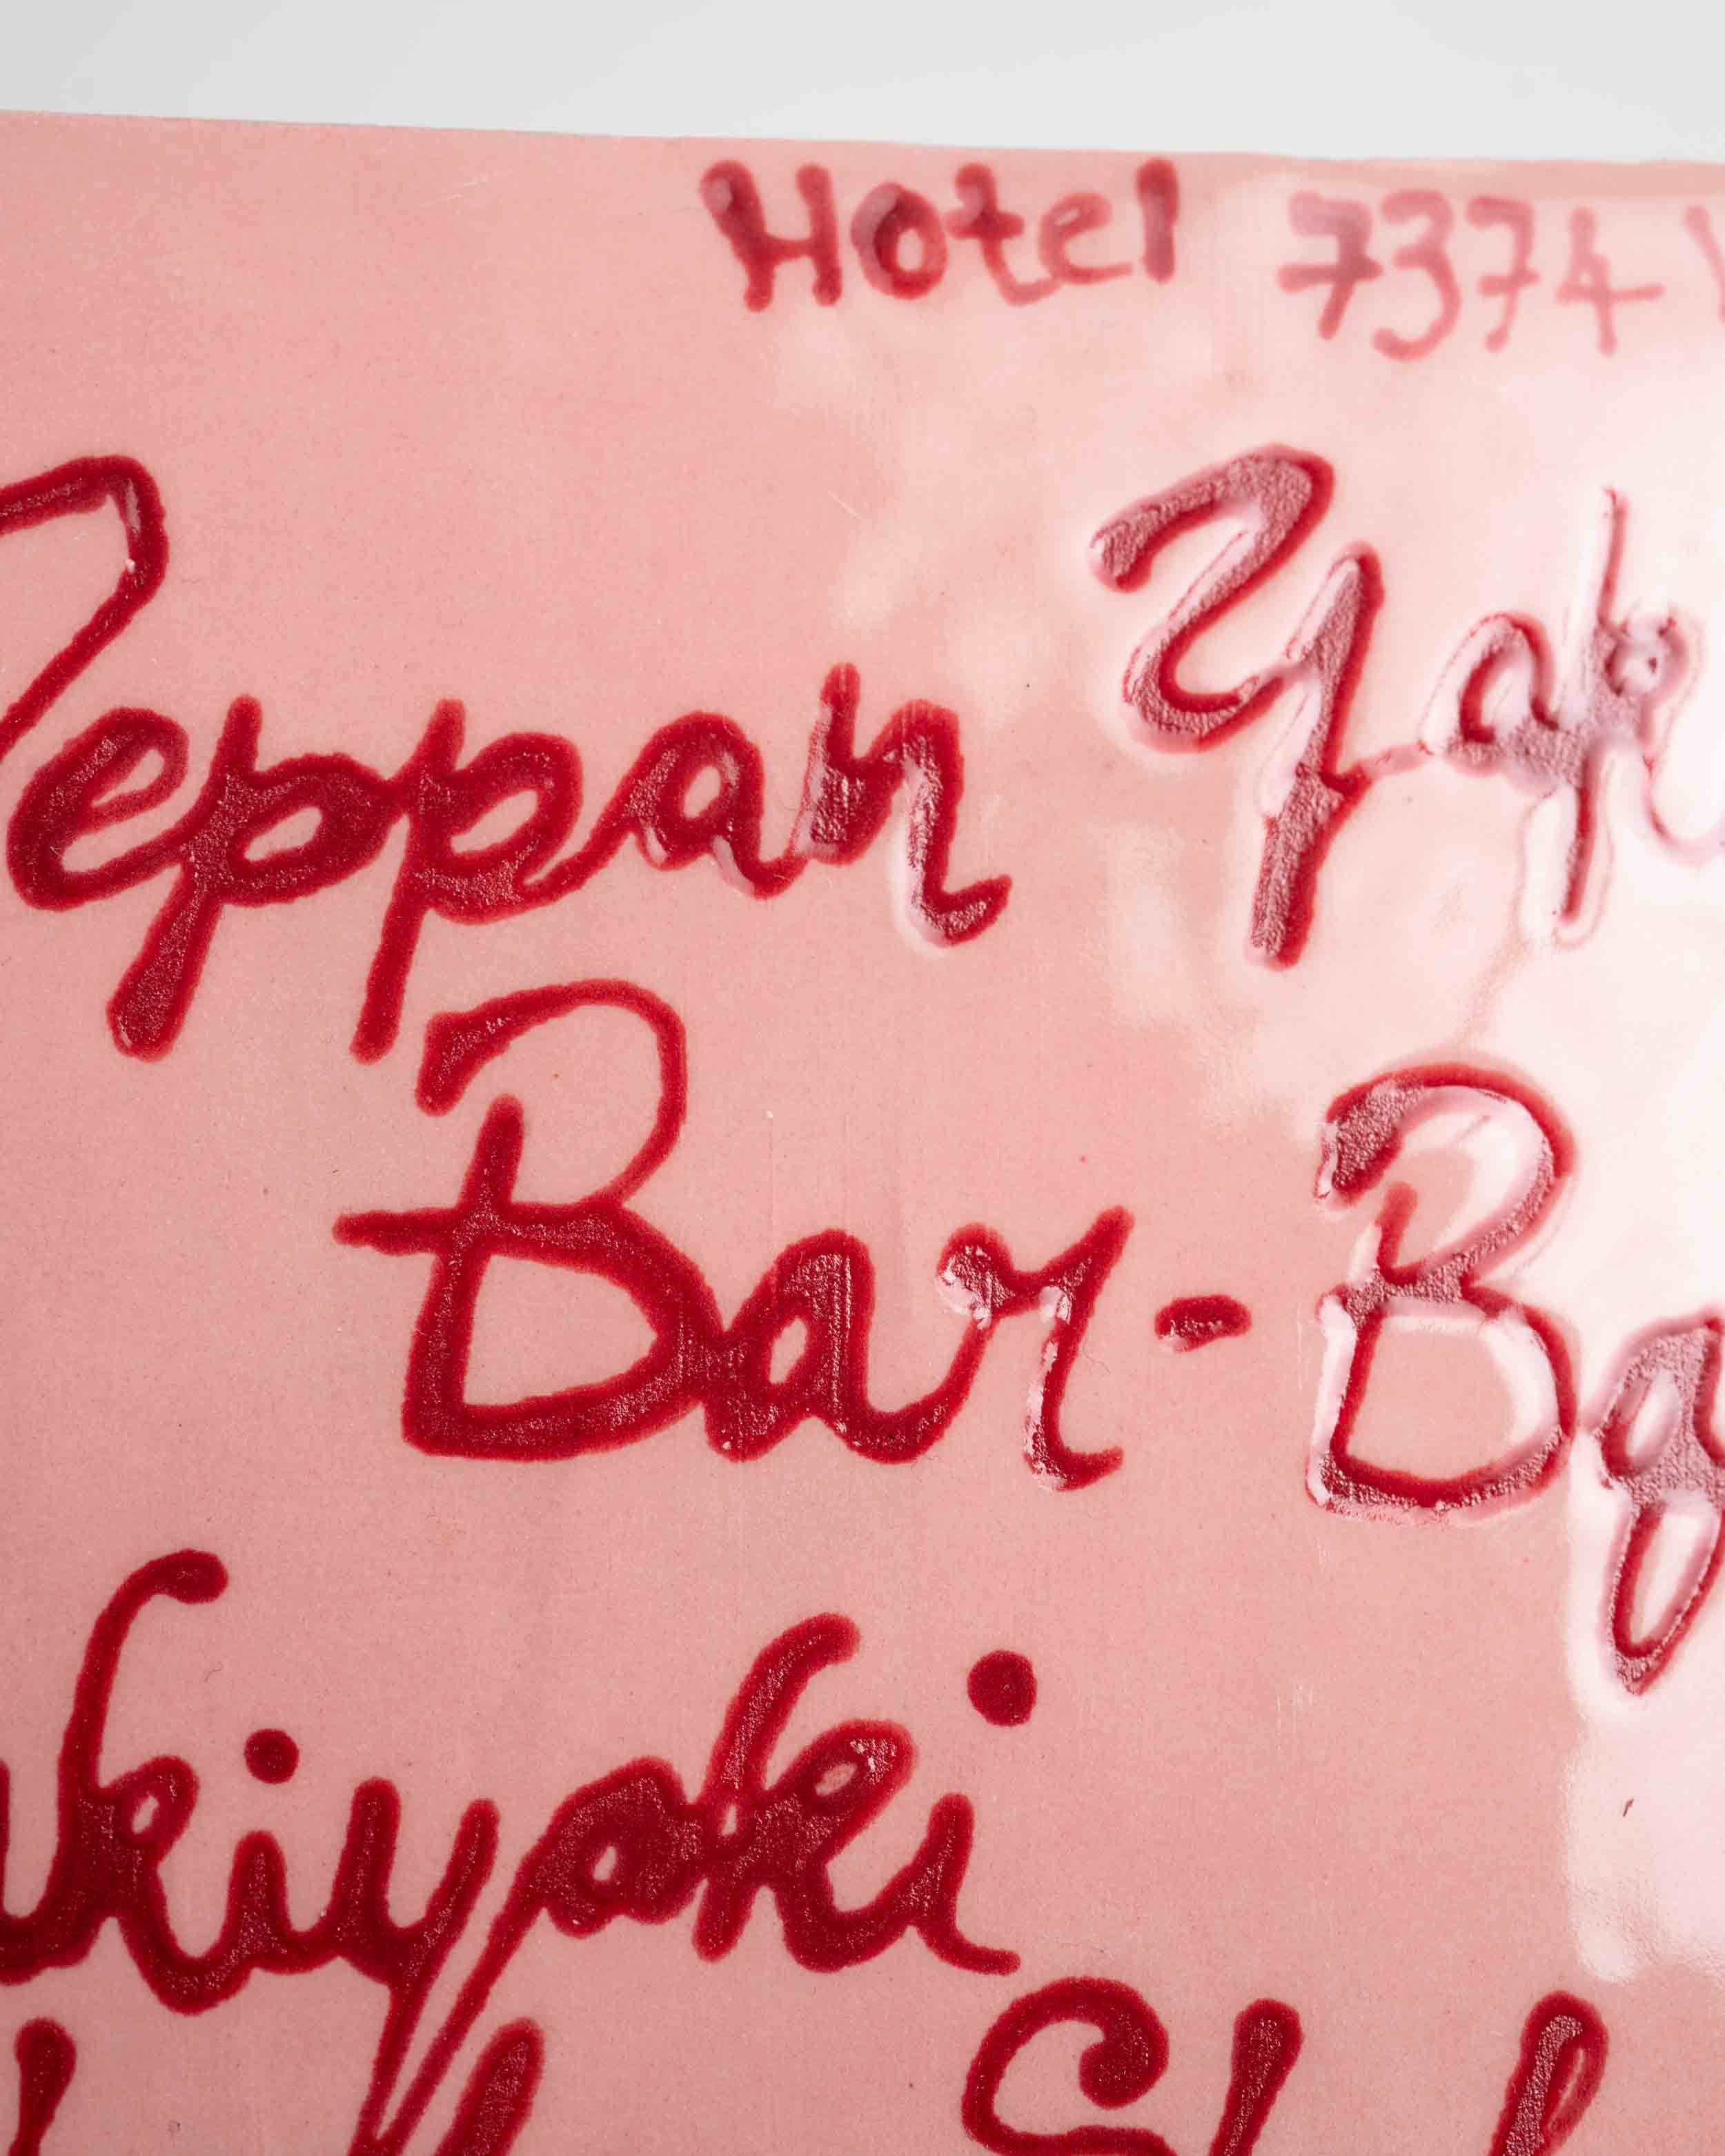 Hotel 7374
Teppan Yak
Bar-B
kiyaki